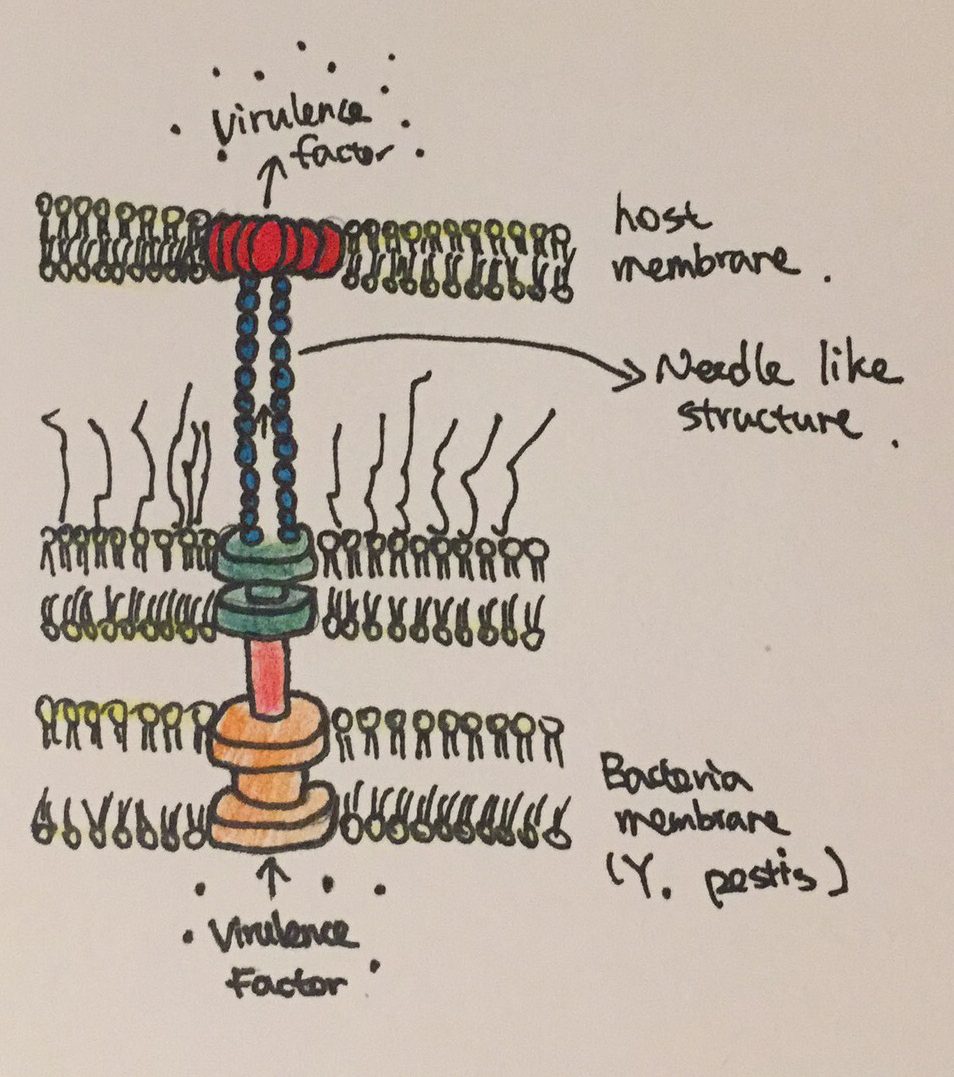 Virulence
factor
host
membrane .
Needle like
structure .
Bacteria
membrane
(Y. pestis)
Virulence
Factor